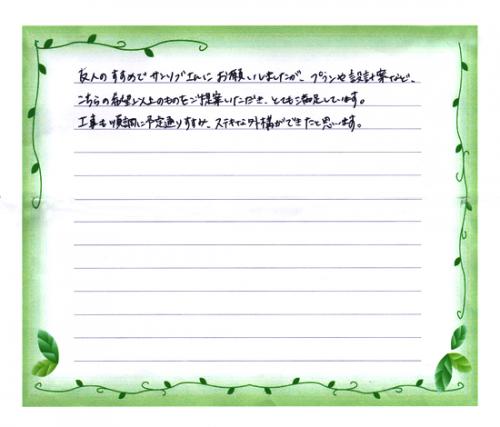 友人のすすめでサンリブエルにお願いしましたが、プランや設計案など、
こちらの希望以上のものをご提案いただき、とても満足しています。
工事も順調に予定通りすすみ、ステキな外構ができたと思います。